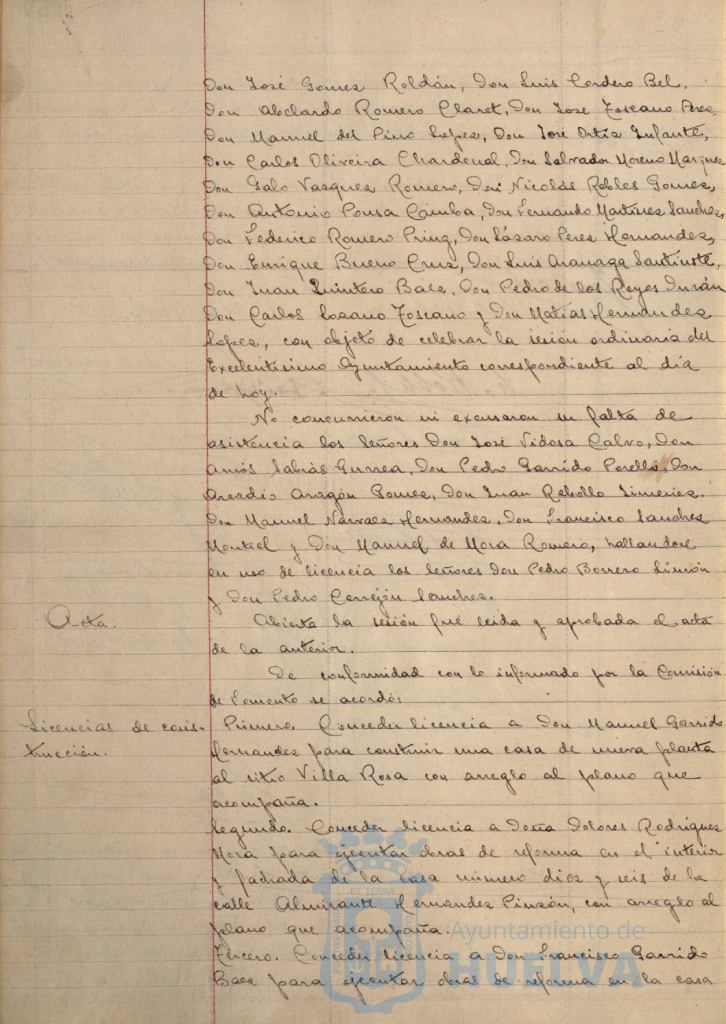 Don José Gomez Roldán, Don Luis Cordero Bel,
Don Abelardo Romero Claret, Don José Toscano Perez,
Don Manuel del Pino Lopez, Don José Ortiz Infante,
Don Carlos Oliveira Chardenal, Don Salvador Moreno Marquez
Don Galo Vazquez Romero, Don Nicolás Robles Gomez,
Don Antonio Pousa Camba, Don Fernando Martinez Sanchez,
Don Federico Romero Pring, Don Lázaro Perez Hernandez,
Don Enrique Bueno Cruz, Don Luis Aranaga Santiuste,
Don Juan Quintero Baez, Don Pedro de los Reyes Durán
Don Carlos Lozano Toscano y Don Matías Hernandez
Lopez, con objeto de celebrar la sesión ordinaria del
Excelentisimo Ayuntamiento correspondiente al día
de hoy.
No concurrieron ni excusaron su falta de
asistencia los Señores Don José Vidosa Calvo, Don
Amós Sabrás Gurrea, Don Pedro Garrido Perelló, Don
Arcadio Aragón Gomez, Don Juan Rebollo Jimenez.
Don Manuel Narvaez Hernandez, Don Francisco Sanchez
Montiel y Don Manuel de Mora Romero, hallandose
en uso de licencia los Señores Don Pedro Borrero Limón
y Don Pedro Cerrejón Sanchez.
Acta.
Abierta la sesión fué leida y aprobada el acta
de la anterior.
De conformidad con lo informado por la Comisión
de Fomento se acordó:
Licencias de cons-
trucción.
Primero. Conceder licencia a Don Manuel Garrido
Hernandez para construir una casa de nueva planta
al sitio Villa Rosa con arreglo al plano que
acompaña.
Segundo. Conceder licencia a Doña Dolores Rodriguez
Mora para ejecutar obras de reforma en el interior
y fachada de la casa número diez y seis de la
calle Almirante Hernandez Pinzón, con arreglo al
plano que acompaña.
Tercero. Conceder licencia a Don Francisco Garrido
Baez para ejecutar obras de reforma en la casa
Ayuntamiento de
HUELVA